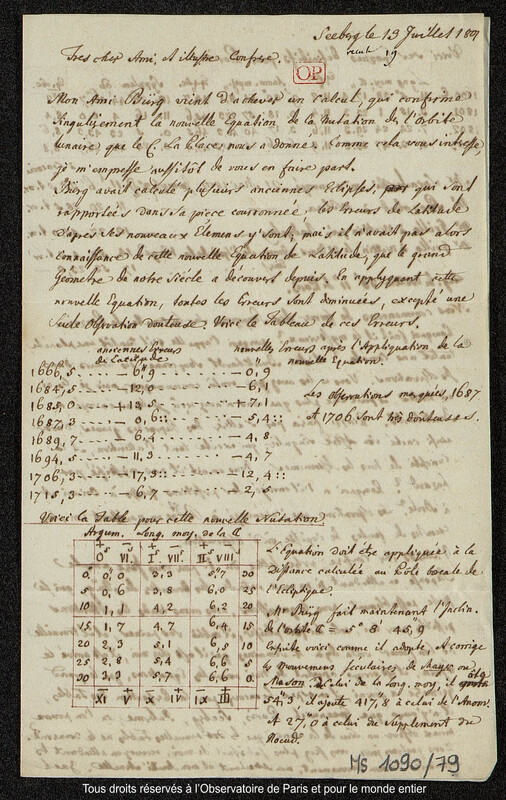 Seeberg le 13 Juillet 1801
recue 19
Tres cher Ami, et illustre Confrere.
OP
Mon Ami Bürg vient d'achever un calcul, qui confirme
singulierement la nouvelle Equation de la Nutation de l'Orbite
lunaire, que le C. La Place nous a donne. Comme cela vous interesse,
je m'empresse aussitôt de vous en faire part.
Bürg avait calculé plusieurs anciennes Eclipses, qui sont
rapportées dans sa piece couronnée, les Erreurs de Latitude
d'après ses nouveaux Elemens y sont; mais il n'avait pas alors
connaissance de cette nouvelle Equation de Latitude, que le grand
Géometre de notre Siécle a découvert depuis. En appliquant cette
nouvelle Equation, toutes les Erreurs sont diminuées, excepté une
seule Observation douteuse. Voici le Tableau de ces Erreurs.
anciennes Erreurs de Latitude
nouvelles Erreurs après l'Appliquation de la nouvelle Equation.
1666,5 ..... — 6"9 ....... — 0"9
1684,5 ..... — 12,0 ....... — 6,1
1685,0 ..... + 12,5 ....... + 7,1
1687,3 ..... — 0,6:: ....... — 5,4::
1689,7 ..... — 6,4 ....... — 4,8
1694,5 ..... — 11,3 ....... — 4,7
1706,3 ..... — 17,3:: ....... — 12,4::
1715,3 ..... — 6,7 ....... — 2,5
Les observations marquées, 1687
et 1706 sont très douteuses.
Voici la Table pour cette nouvelle Nutation
Argum. Long. moy. de la ☾
+ — + — + —
0s VI I VII II VIII
0° 0"0 3"3 5"7 30
5 0,6 3,8 6,0 25
10 1,1 4,2 6,2 20
15 1,7 4,7 6,4 15
20 2,3 5,1 6,5 10
25 2,8 5,4 6,6 5
30 3,3 5,7 6,6 0
XI V X IV IX III
L'Equation doit être appliquée à la
Distance calculée au Pôle boreale de
l'Ecliptique.
Mr Bürg fait maintenant l'Inclin.
de l'orbite ☾ = 5° 8' 45"9
Ensuite voici comme il adopte, et corrige
les Mouvemens seculaires de Mayer ou
Mason. de celui de la Long. moy. il ote
54"3 il ajoute 417"8 à celui de l'Anom.
et 27"0 à celui du Supplement du
Noeud.
Ms 1090/79
Tous droits réservés à l'Observatoire de Paris et pour le monde entier